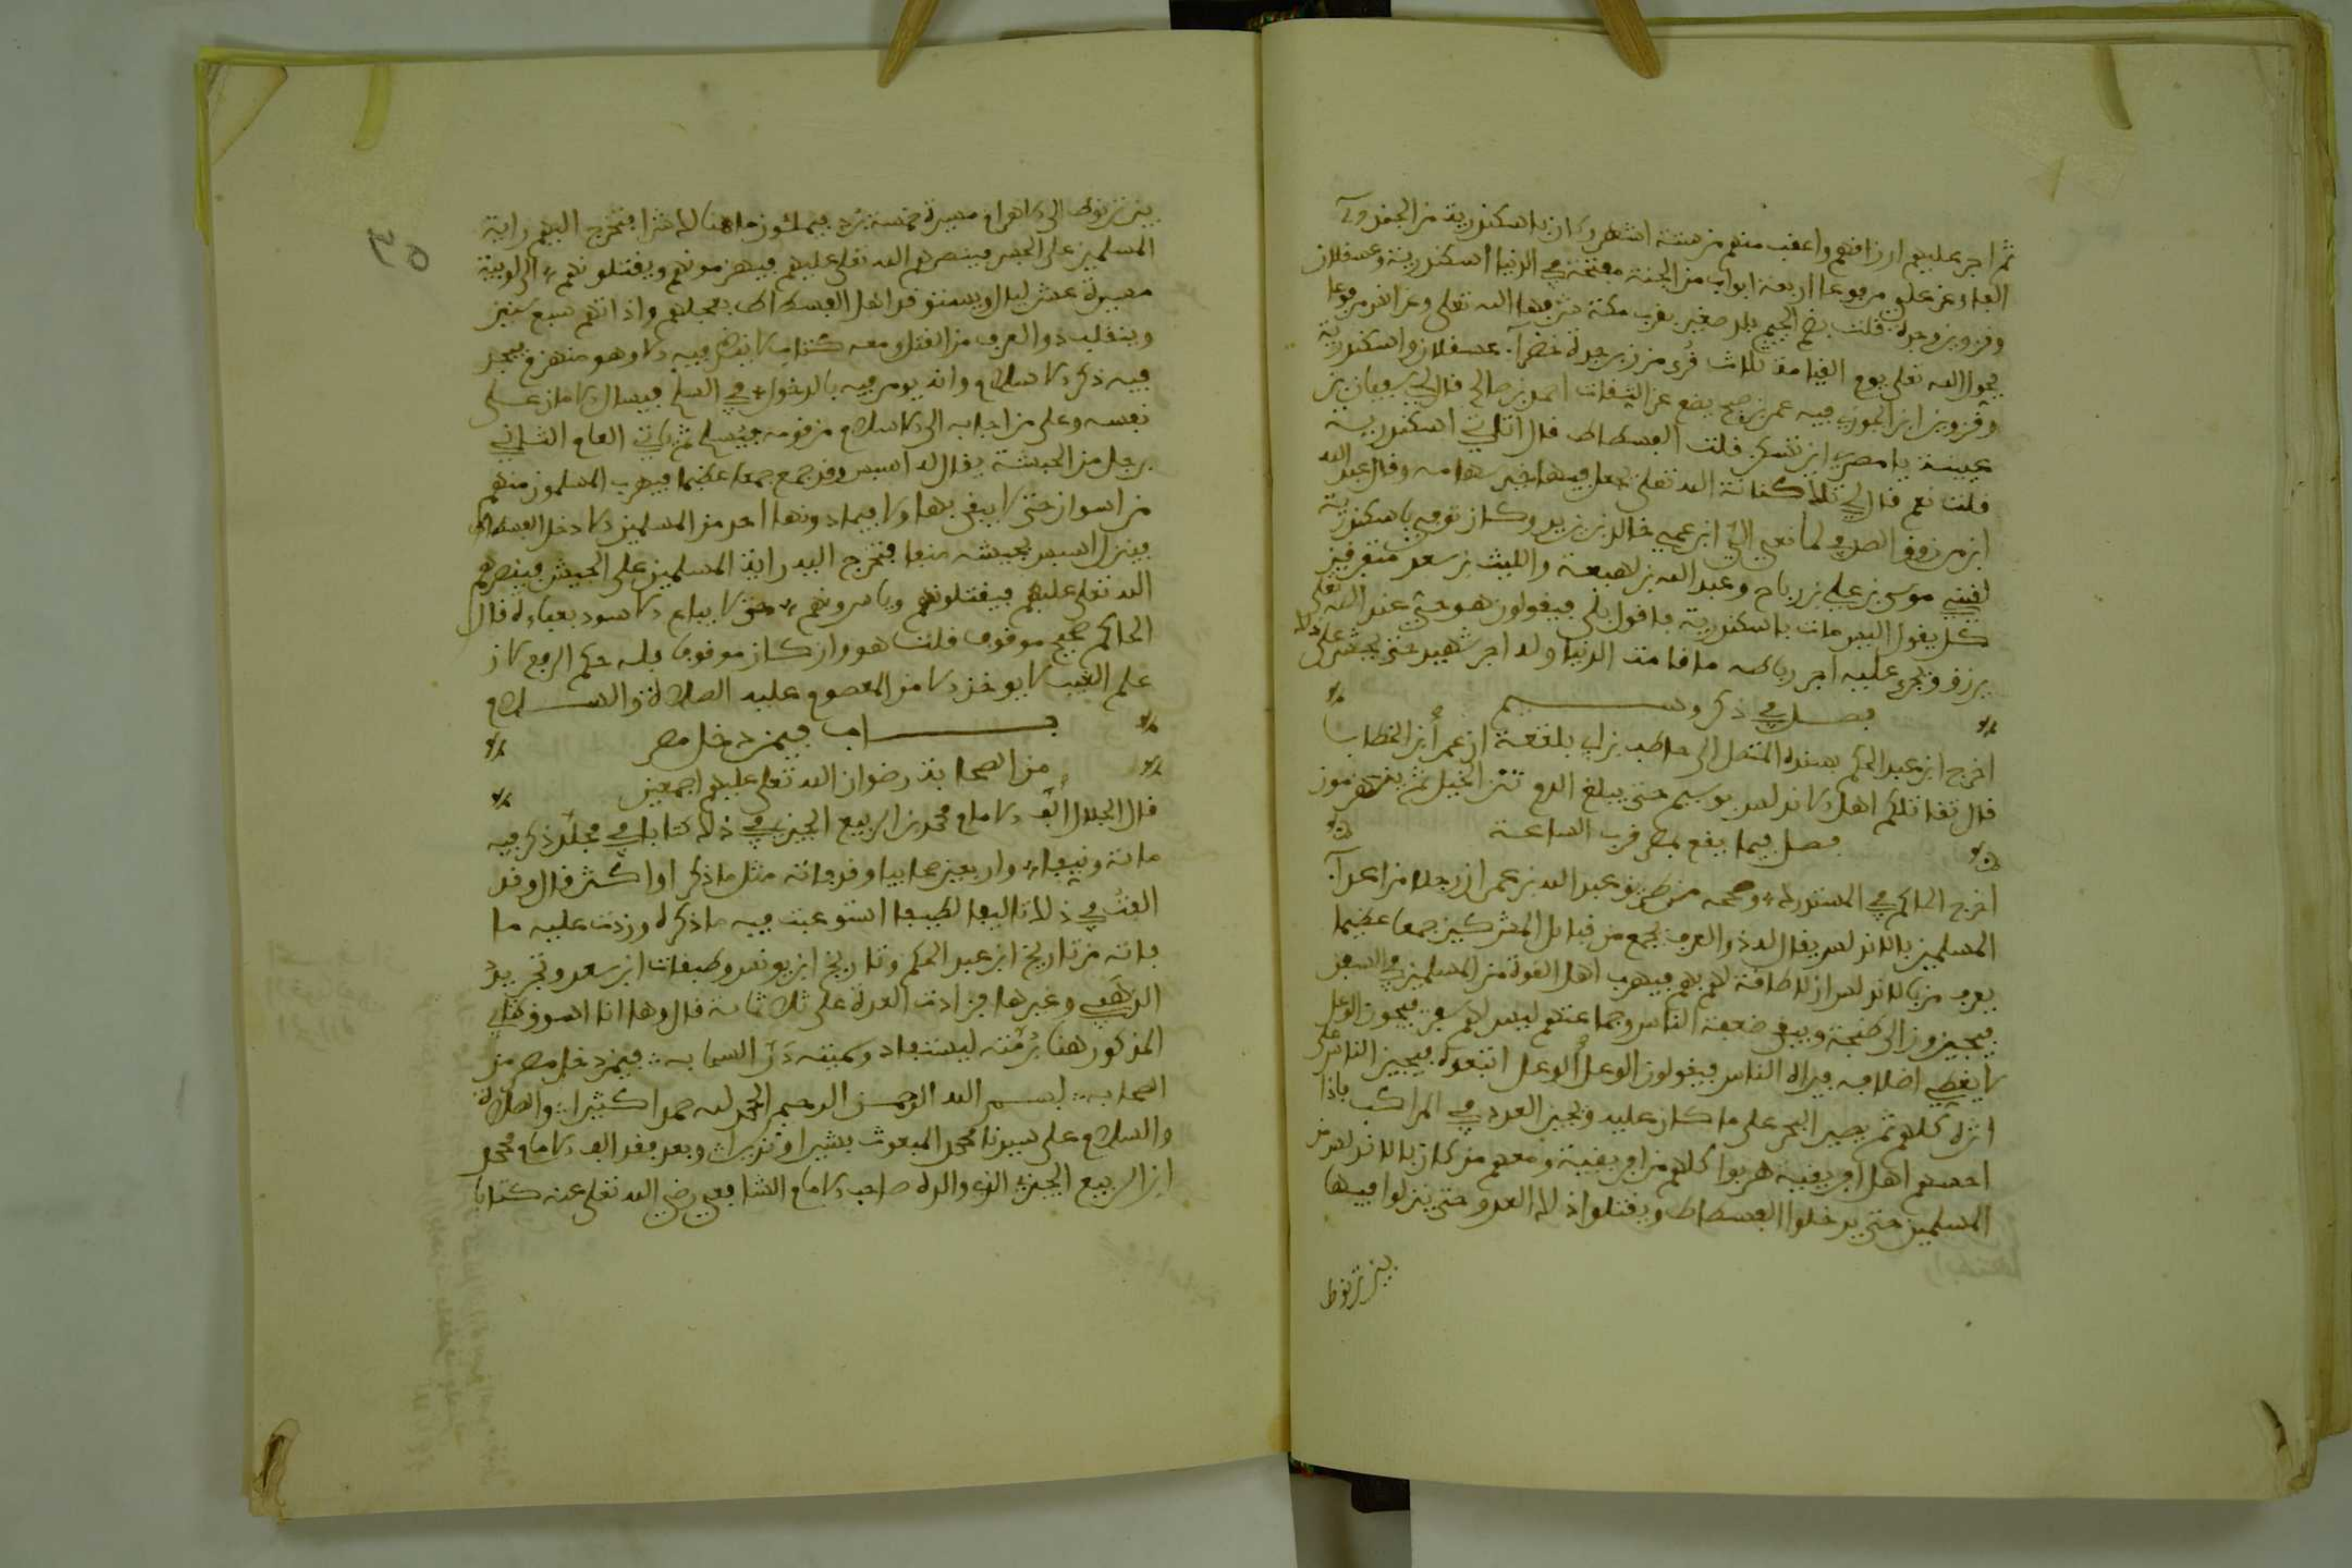 ثم اجر عليهم ارزاقهم واعقب منهم من ستة اشهر وكان باسكندرية من الجند
الفا وعن علي مرفوعا اربعة ابواب من الجنة مفتحة في الدنيا اسكندرية وعسقلان
وقزوين وجدة قلت بضم الجيم بلد صغير بقرب مكة شرفها الله تعلى وعن انس مرفوعا
يحول الله تعلى يوم القيامة ثلاث قرى من زبرجدة خضرآء عسقلان واسكندرية
وقزوين ابن الجوزي فيه عمر بن صبح يضع عن الثقات احمد بن صالح قال لي سفيان بن
عيينة يا مصري اين تسكن قلت الفسطاط قال اتاتي اسكندرية
قلت نعم قال لي تلك كنانة الله تعلى يجعل فيها خير سهامه وقال عبد الله
ابن مرزوق الصدفي لما نعي الي ابن عمي خالد بن يزيد وكان توفي باسكندرية
لقيني موسى بن علي بن رباح وعبد الله بن لهيعة والليث بن سعد متفرقين
كل يقول اليس مات باسكندرية فاقول بلى فيقولون هو حي عند الله تعلى
يرزق ويجرى عليه اجر رباطه ما قامت الدنيا وله اجر شهيد حتى يحشر على ذلك
فصل في ذكر وسيم
اخرج ابن عبد الحكم بسنده المتصل الى حاطب بن ابي بلتعة ان عمر بن الخطاب
قال تقاتلكم اهل الاندلس بوسيم حتى يبلغ الدم ثنن الخيل ثم ينهزمون
فصل فيما يقع بمصر قرب الساعة
اخرج الحاكم في المستدرك وصححه من طريق عبد الله بن عمر ان رجلا من اعدآء
المسلمين بالاندلس يقال له ذو العرف يجمع من قبائل المشركين جمعا عظيما
يعرف من بالاندلس ان لا طاقة لهم بهم فيهرب اهل القوة من المسلمين في السفن
فيجيزون الى طنجة ويبقى ضعفة الناس وجماعتهم ليس لهم سفن فيجوز الوعل
لا يغطي اظلافه فيراه الناس فيقولون الوعل الوعل اتبعوه فيجيز الناس على
اثره كلهم ثم يصير البحر على ما كان عليه ويجيز العدو في المراكب فاذا
احسهم اهل افريقية هربوا كلهم من افريقية ومعهم من كان بالاندلس من
المسلمين حتى يدخلوا الفسطاط ويقتلوا ذلك العدو حتى ينزلوا فيها
بين ترنوط
بين ترنوط الى الاهرام مسيرة خمسة برد فيملئون ما هنالك شرا فتخرج اليهم راية
المسلمين على الجسر فينصرهم الله تعلى عليهم فيهزمونهم ويقتلونهم الى لوبية
مسيرة عشر ليال ويستوقد اهل الفسطاط بعجلهم واداتهم سبع سنين
وينقلب ذو العرف من القتل ومعه كتاب لا ينظر فيه الا وهو منهزم فيجد
فيه ذكر الاسلام وانه يومر فيه بالدخول في السلم فيسال الامان على
نفسه وعلى من اجابه الى الاسلام من قومه فيسلم ثم ياتي العام الثاني
رجل من الحبشة يقال له اسيس وقد جمع جمعا عظيما فيهرب المسلمون منهم
من اسوان حتى لا يبقى بها ولا فيما دونها احد من المسلمين الا دخل الفسطاط
فينزل اسيس بجيشه منف فتخرج اليه راية المسلمين على الجسر فينصرهم
الله تعلى عليهم فيقتلونهم وياسرونهم حتى لا يباع الاسود بعباءة قال
الحاكم صحيح موقوف قلت هو وان كان موقوفا فله حكم الرفع لان
علم الغيب لا يوخذ الا من المعصوم عليه الصلاة والسلام
باب فيمن دخل مصر
من الصحابة رضوان الله تعلى عليهم اجمعين
قال الجلال الف الامام محمد بن الربيع الجيزي في ذلك كتابا في مجلد ذكر فيه
مائة ونيفا واربعين صحابيا وقد فاته مثل ما ذكر او اكثر قال وقد
الفت في ذلك تاليفا لطيفا استوعبت فيه ما ذكره وزدت عليه ما
فاته من تاريخ ابن عبد الحكم وتاريخ ابن يونس وطبقات ابن سعد وتجريد
الذهبي وغيرها فزادت العدة على ثلاثمائة قال وها انا اسوق كتابي
المذكور هنا برمته ليستفاد وسميته در السحابة فيمن دخل مصر من
الصحابة بسم الله الرحمن الرحيم الحمد لله حمدا كثيرا والصلاة
والسلام على سيدنا محمد المبعوث بشيرا ونذيرا وبعد فقد الف الامام محمد
ابن الربيع الجيزي الذي والده صاحب الامام الشافعي رضي الله تعلى عنه كتابا